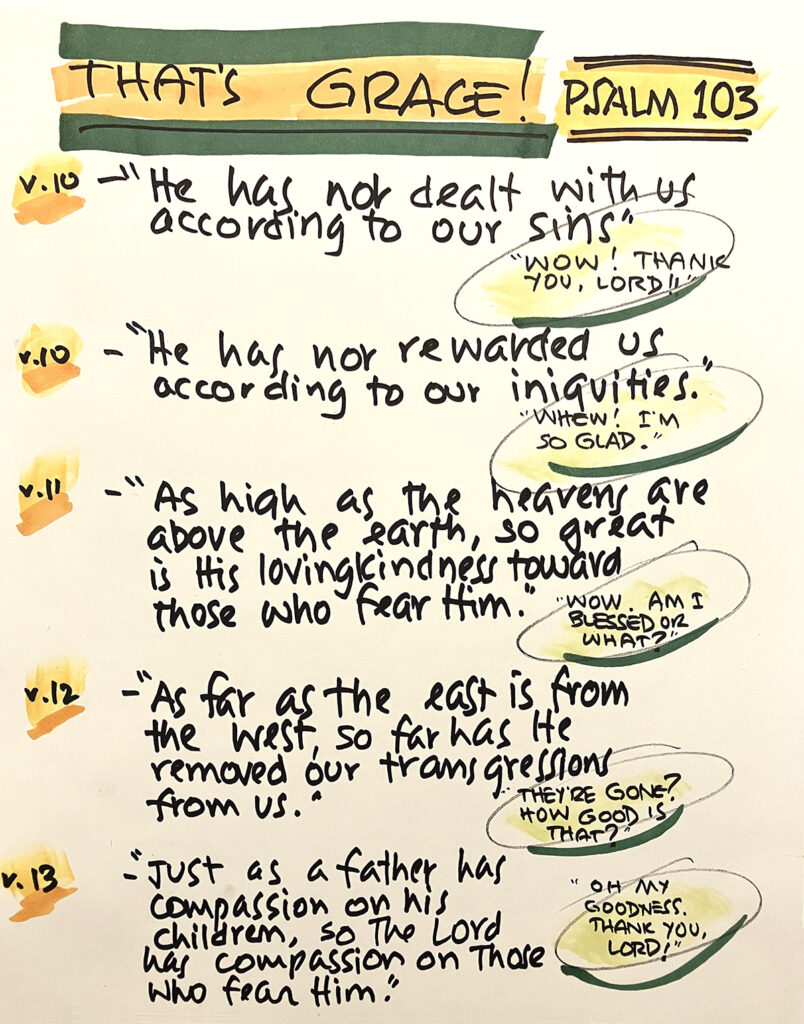 THAT'S GRACE! PSALM 103
v.10 - "He has not dealt with us
according to our sins"
"WOW! THANK
YOU, LORD!!"
v.10 - "He has not rewarded us
according to our iniquities."
"WHEW! I'M
SO GLAD."
v.11 - "As high as the heavens are
above the earth, so great
is His lovingkindness toward
those who fear Him."
"WOW. AM I
BLESSED OR
WHAT?"
v.12 - "As far as the east is from
the west, so far has He
removed our transgressions
from us."
"THEY'RE GONE?
HOW GOOD IS
THAT?"
v.13 - "Just as a father has
compassion on his
children, so The Lord
has compassion on Those
who fear Him."
"OH MY
GOODNESS.
THANK YOU,
LORD!"